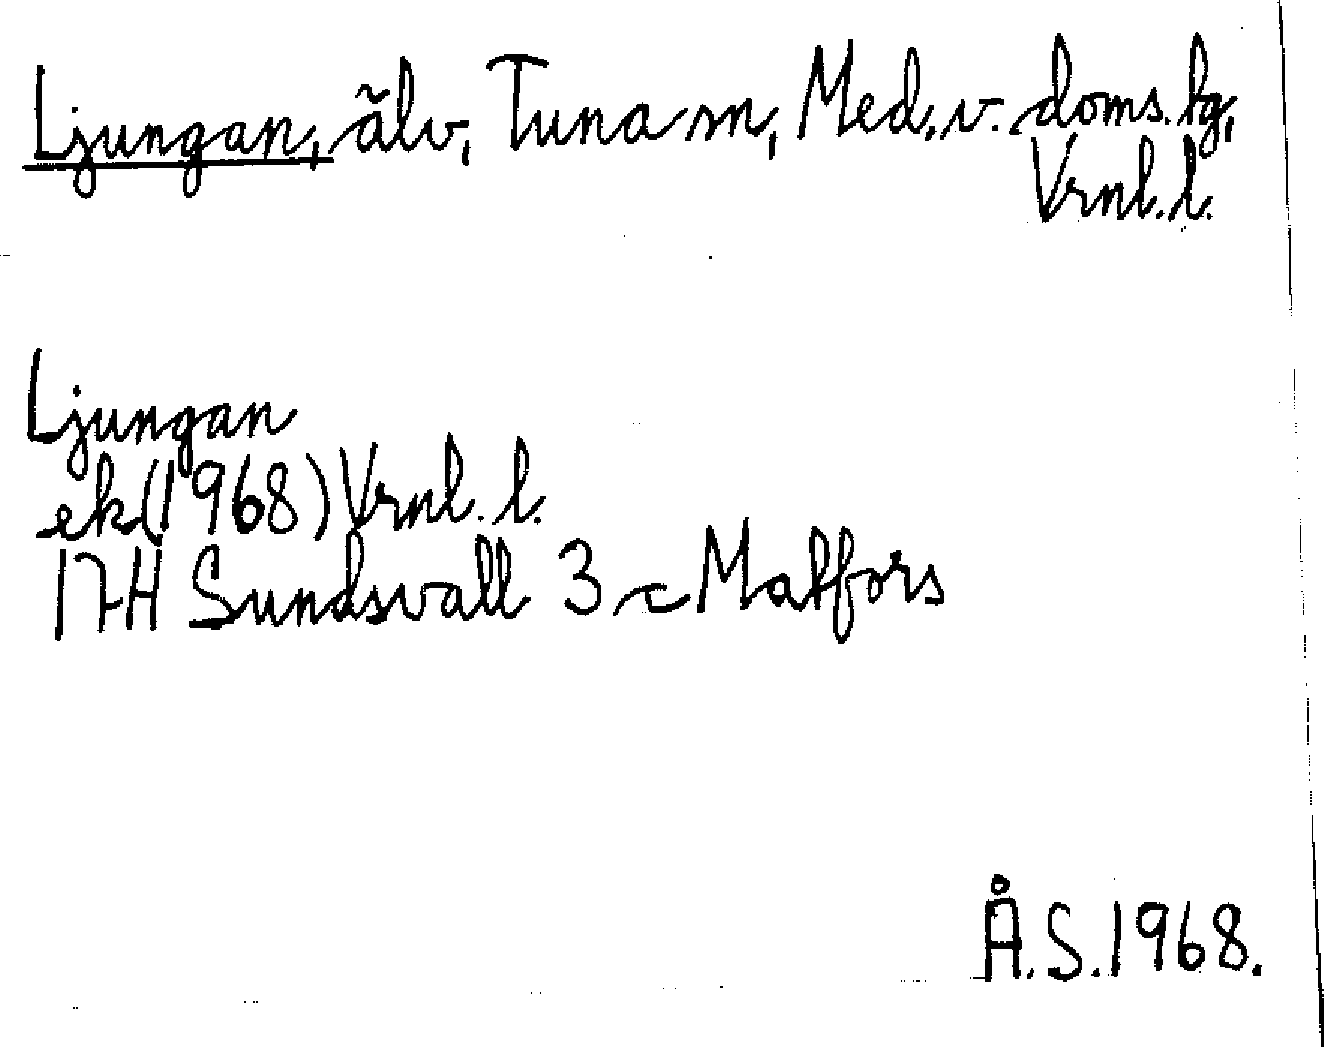 Ljungan, älv, Tuna sn, Med. v. doms. lg,
Vrnl. l.
Ljungan
ek(1968) Vrnl. l.
17H Sundsvall 3 c Matfors
Å.S. 1968.